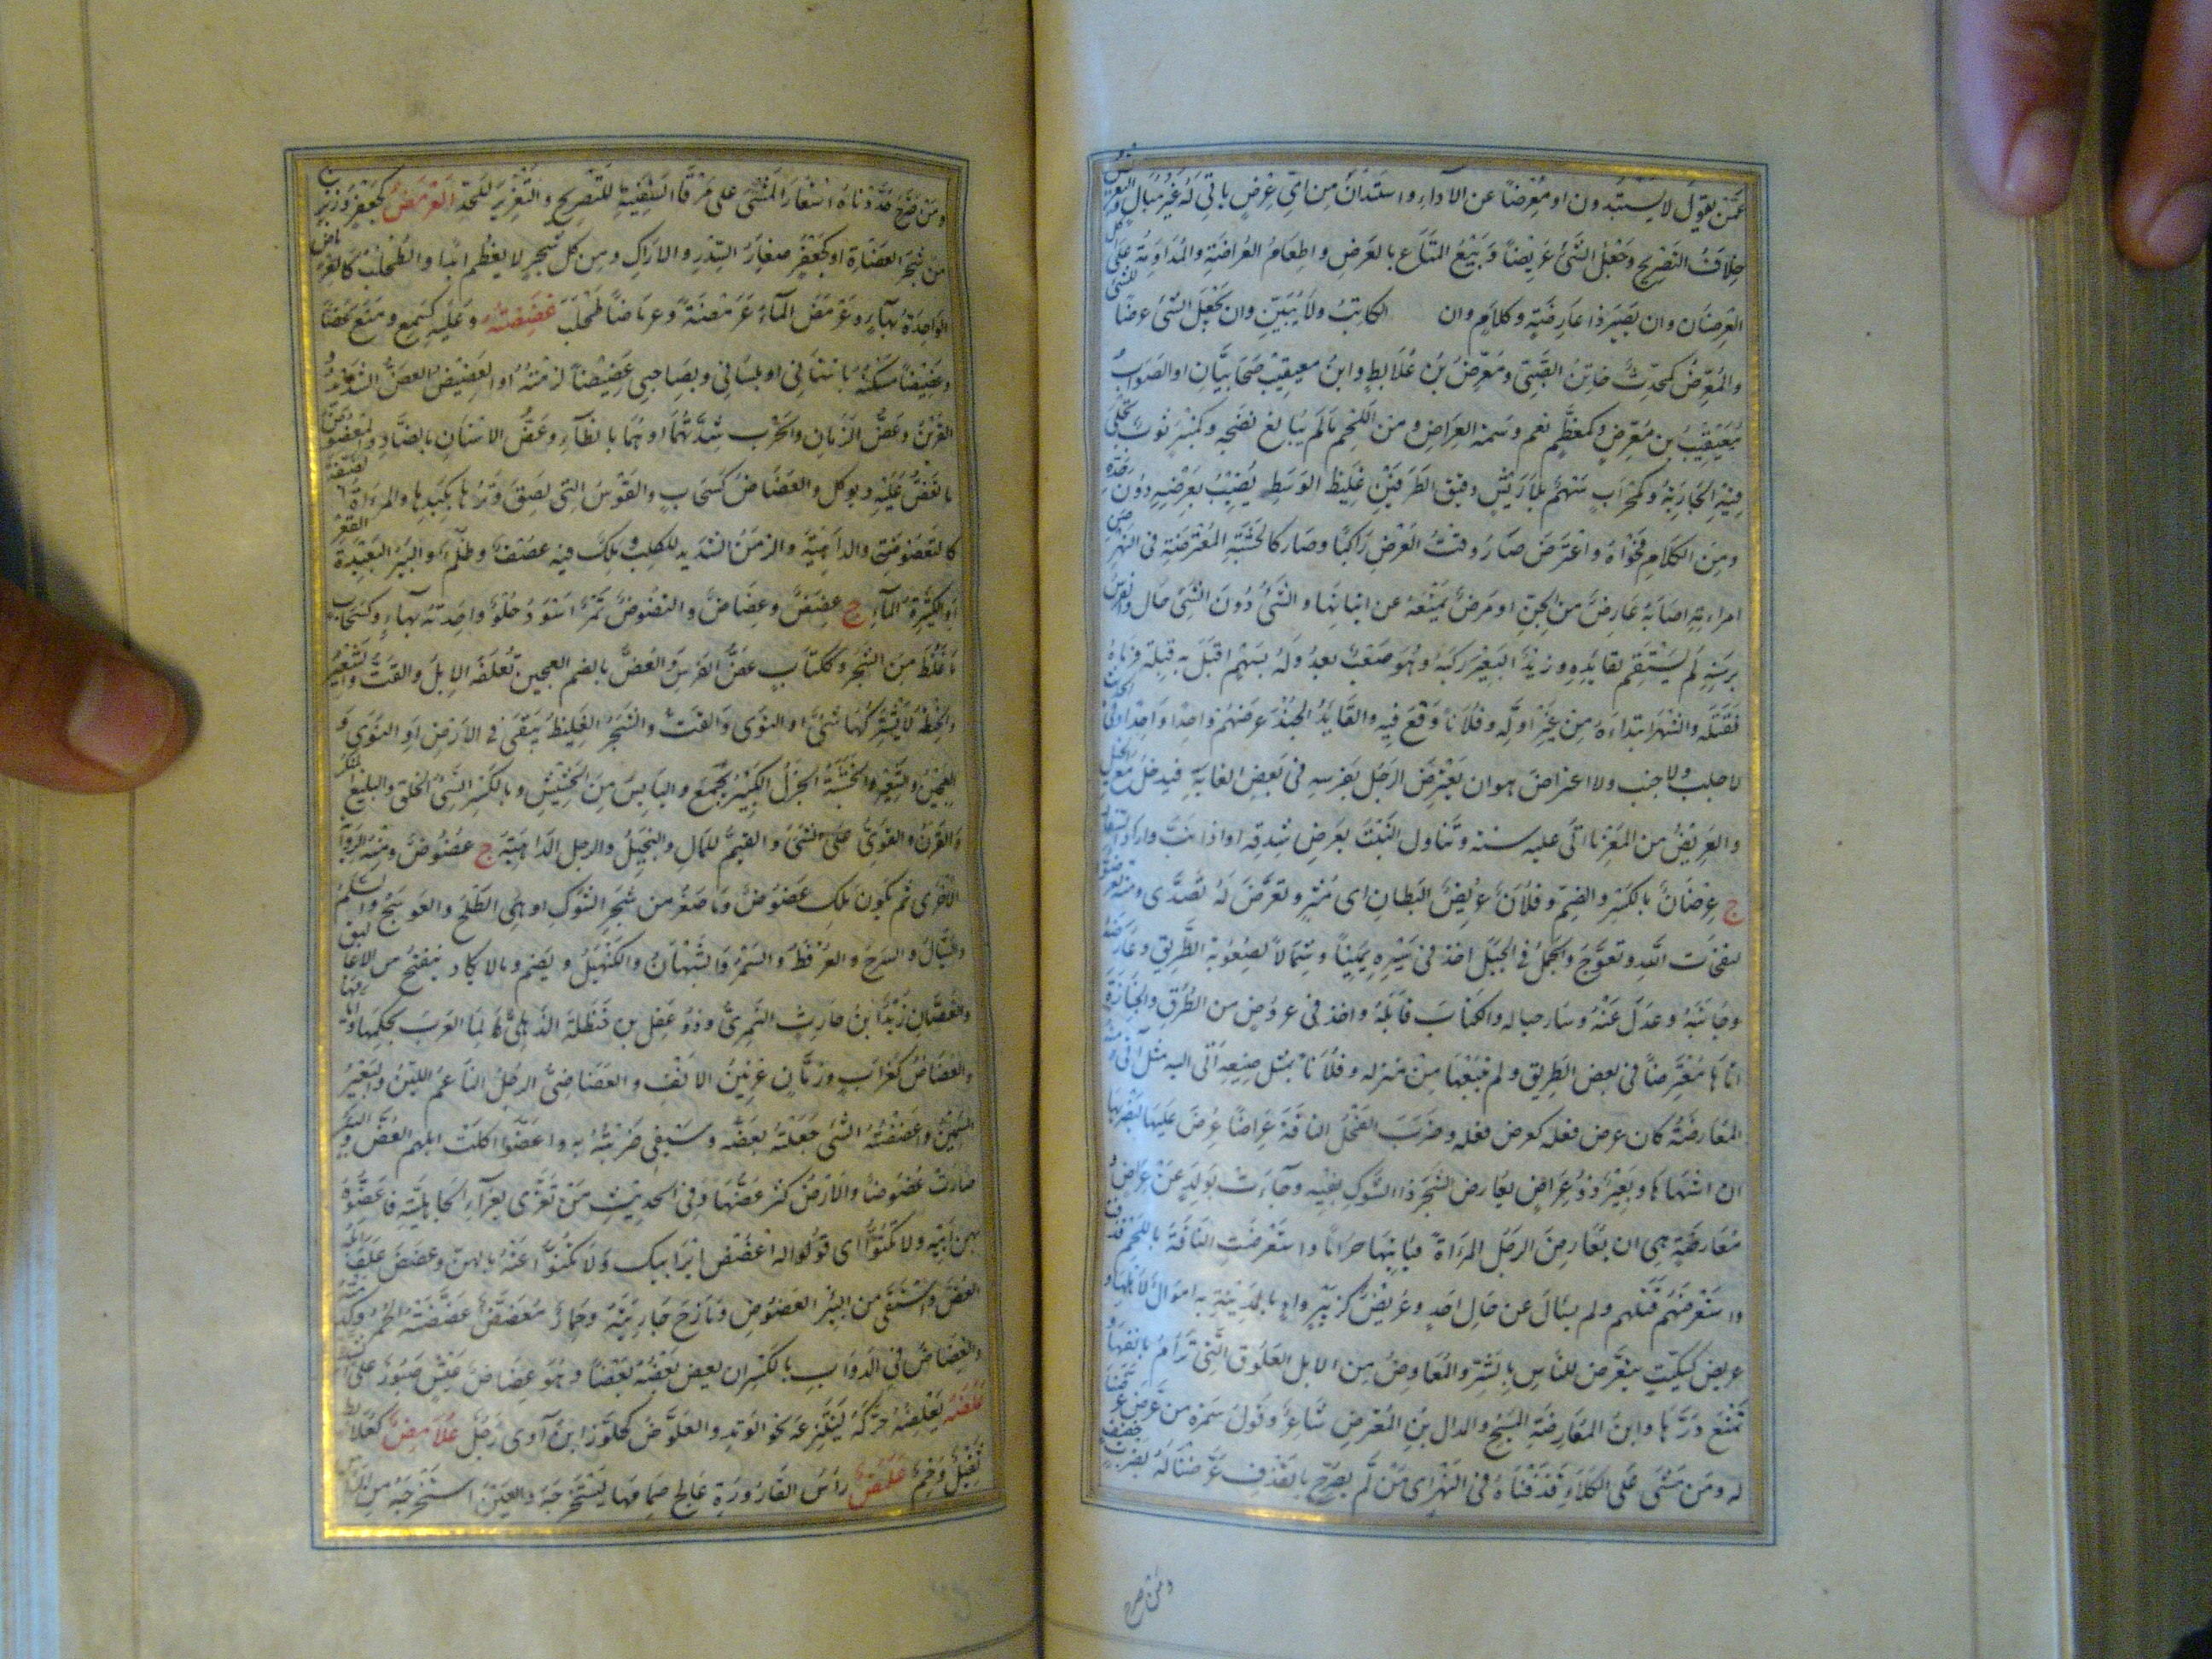 عَمَّن يقول لا يستبدون او مُعْرِضًا عن الاداءِ واستدانَ مِن اىّ عِرضٍ ياتى لَه غيرُ مُبالٍ
خلافُ التصريح وجَعْلُ الشئ عَريضًا وبَيْعُ المَتاع بالعَرَضِ واطعامُ العُراضَةِ والمُداوَمَةُ على
العِرضان وان يصير ذا عارضةٍ وكلامٍ وان الكاتبُ ولا يُبَيِّن وان تجعل الشئ عرضًا
والمُعَرِّضُ كمحدِّثٍ خاتنُ الصَّبِىّ ومُعَرِّضُ بنُ عُلابِطٍ وابنُ معيقيب صَحابيّان او الصَوابُ
مُعَيْقِيبُ بن مُعَرِّضٍ وكمعظَّمٍ نعم وَسمه العِراض ومن اللحم ما لم يُبالغ نضجه وكمِنْبَرٍ ثوبٌ تُجْلى
فيه الجارية وكمِحرابٍ سَهْمٌ بلا رَيْشٍ دقيق الطَرَفَيْنِ غليظُ الوسَطِ يُصيبُ بعَرْضِه دُونَ حَدِّه
ومن الكلام فَحْواهُ واعْتَرَضَ صارَ وقتَ العَرْضِ راكبًا وصار كالخشبَةِ المُعْتَرِضَةِ فى النهر
امراءته اصابَهُ عارضٌ من الجِنّ او مَرَضٌ يَمْنَعُه عن اتيانها والشئُ دُونَ الشئ حال والفرسُ
برسنه لم يستقم لقايده وزيدٌ البعيرَ ركبَهُ وهُوَ صَعْبٌ بعدُ ولهُ بسَهْمٍ اقبَلَ به قِبَله فرماهُ
فقتله والشهرَ ابتداءهُ مِن غير اوّلِه وفلانًا وَقَعَ فيه والقايدُ الجُنْدَ عرضهم واحدًا واحدًا وفى
لا جلب ولا جنب ولا اعتراضَ هو ان يَعْتَرِضَ الرجلُ بفرسِه فى بَعضِ الغايةِ فيدخلَ مع الخيل
والعَريضُ من المَعَز ما اتى عليه سنة وتناول النَبْتَ بعرضِ شِدْقِه او اذا نبّ واراد
ج عِرضان بالكسر والضم وفلانٌ عريضُ البِطانِ اى مُثرٍ وتَعَرَّضَ لَه تَصَدَّى ومنه
لنفحات الله وتعوّج والجَمَلُ فى الجبل اخذ فى سَيْرِه يمينًا وشمالًا لصُعُوبة الطريق وعارضه
وجانبَهُ وعدل عنْه وسار حياله والكتاب قابَلَهُ واخذ فى عروضٍ من الطُرُقِ والجنازةَ
اتاها مُعْتَرِضًا فى بعض الطريق ولم يتبعها مِنْ منزله وفلانًا بمثل صنيعِه اتى اليه مثل
المُعارضةُ كان عرض فعله كعرض فعله وضربَ الفَحْلُ الناقةَ عِراضًا عُرِضَ عليها ليضربها
ان اشتهاها وبعيرٌ ذو عِراضٍ يُعارض الشجَرَ ذا الشَّوْكِ بفيه وجآءت بولدٍ عنْ عِراضٍ
مُعارضةٍ هى ان يُعارضَ الرجلُ المرأةَ فياتيَها حرامًا واستعرضَتِ الناقةُ باللحم
واستعرضَهُم قتلهم ولم يسأل عن حالِ احدٍ وعُرَيضٌ كزبيرٍ وادٍ بالمدينةِ به اموالٌ لاهلها
عريض كسِكّيتٍ يتعرّض للناس بالشرّ والمُعارِضُ مِن الابل العَلُوق التى تَرأمُ بانفها
تَمنعُ دَرَّها وابنُ المُعارَضةِ السَّفيح والدال بنِ المُعْرِضِ شاعرٌ وقولُ سَمُرة من عَرَّضَ
له ومَن مَشى على الكلّاءِ قذفناهُ فى النهر اى مَنْ لم يصرّح بالقذف عرّضنا لَهُ بضَرْبٍ خفيفٍ
ومَن صرّح
ومَن صرَّح حدَدْناهُ استعارَ المَشْىَ على مَرْفأ السفينةِ للتصريح والتغريقَ للحدّ العَرْمَضُ كجعفرٍ وزِبْرِجٍ
من شجر العضاهِ او كجعفرٍ صغارُ السِّدْرِ والاراكِ ومن كلّ شجرٍ لا يعظم ابدًا والطُحْلُبُ كالعِرْماض
الواحدةُ بهآءٍ وعَرْمَضَ المآءُ عَرْمَضَةً وعِرماضًا طَحْلَبَ عَضِضتُه وعَلَيه كسَمِعَ ومَنَعَ عَضًّا
وعَضيضًا مسكتُه باسنانى او بلسانى وبصاحبى عَضيضًا لزمتُه او العَضيضُ العضّ الشديدُ
القرينُ وعَضُّ الزمانِ والحَرْب شِدَّتُهُما او هُما بالظآءِ وعَضُّ الاسنانِ بالضّادِ والعَضُوضُ
ما يُعَضُّ عليه ويوكل والعَضاضُ كسَحابٍ والقَوْس التى لصِقَ وتَرُها بكبدها والمرءاةُ الضيّقةُ
كالتعضوضةِ والداهيةُ والزمنُ الشديد الكلِب ومِلكٌ فيه عَسفٌ وظُلْمٌ والبيرُ البعيدةُ القَعْرِ
او الكثيرةُ المآءِ ج عُضُضٌ وعِضاضٌ والتعضوضُ تمرٌ اسودُ حُلوٌ واحدتُه بهآءٍ وكسَحابٍ
ما غلُظَ مِن الشجر وككتابٍ عَضُّ الفرسِ والعُضُّ بالضم العجين تُعلَفُه الابلُ والقَتُّ والشعيرُ
والحنطةُ لا يَشرَكُهُما شئٌ او النَّوَى والقتّ والشجرُ الغليظُ يَبقى فى الارضِ او النَّوَى و
العجينُ والشعيرُ والخشَبُ الجزلُ الكبيرُ يُجمَع واليابسُ من الحشيشِ وبالكسرِ السّيئُ الخلق والبليغ المُنكَر
والقِرنُ والقوىُّ على الشئ والقيّم للمال والبخيلُ والرجل الداهيةُ ج عُضُوضٌ ومنه الروايةُ
الاخرى ثم يكون مُلك عُضُوضٌ وما صَغُرَ من شجر الشوْكِ او هى الطلح والعَوسجُ والسَّلَمُ
والسَّيالُ والسرحُ والعُرْفُطُ والسَّمُرُ والشَّبَهانُ والكَنَهْبَلُ ويضم وما لا يكاد ينفتح من الاغاليق
والعِضّانِ زيدُ ابنُ حارثٍ النَّمَرىُّ ودَغفل بن حَنظلة الذُّهلىُّ عالِما العَربِ بحِكَمِها وايّامها
والعُضاضُ كغُرابٍ ورُمّانٍ عِرنينُ الانفِ والعُضاضىُّ الرجُلُ الناعم الليّنُ والبعيرُ
السمينُ واَعضَضْتُهُ الشئَ جَعَلتُه يَعَضُّه وسيفى ضربتُهُ به واعَضُّوا اكلَتْ ابلهم العُضَّ والبير
صارت عَضُوضًا والارضُ كثر عُضُّها وفى الحديث مَنْ تَعَزَّى بعزآءِ الجاهليةِ فاَعِضُّوهُ
بهن ابيه ولا تكنُوا اى قولوا له اعضُض ايرَ ابيك ولا تكنوا عنْهُ بالهن وعضّضَ علَفَ
العُضَّ واستقى من البيرِ العَضُوضِ ومازَحَ جاريتَهُ وحِمارٌ مُعَضَّضٌ عَضَّضَتْهُ الحُمُرُ وكدَمَتْه
والعِضاضُ فى الدوابِ بالكسرِ ان يعض بَعضُهُ بَعْضًا وهُوَ عِضاضُ عَيْشٍ صَبُورٌ على
عَلَضَهُ يَعْلِضُهُ حرّكَهُ لينتزعَهُ نحو الوتد والعِلَّوْضُ كجِلَّوزٍ ابنُ آوى رجُلٌ عُلامِضٌ كعُلابطٍ
ثقيلٌ وَخِمٌ عَلْهَضَ رأسَ القارورةِ عالجَ صِمامَها ليستخرجَهُ والعينَ استخرجَهُ مِن الرأس